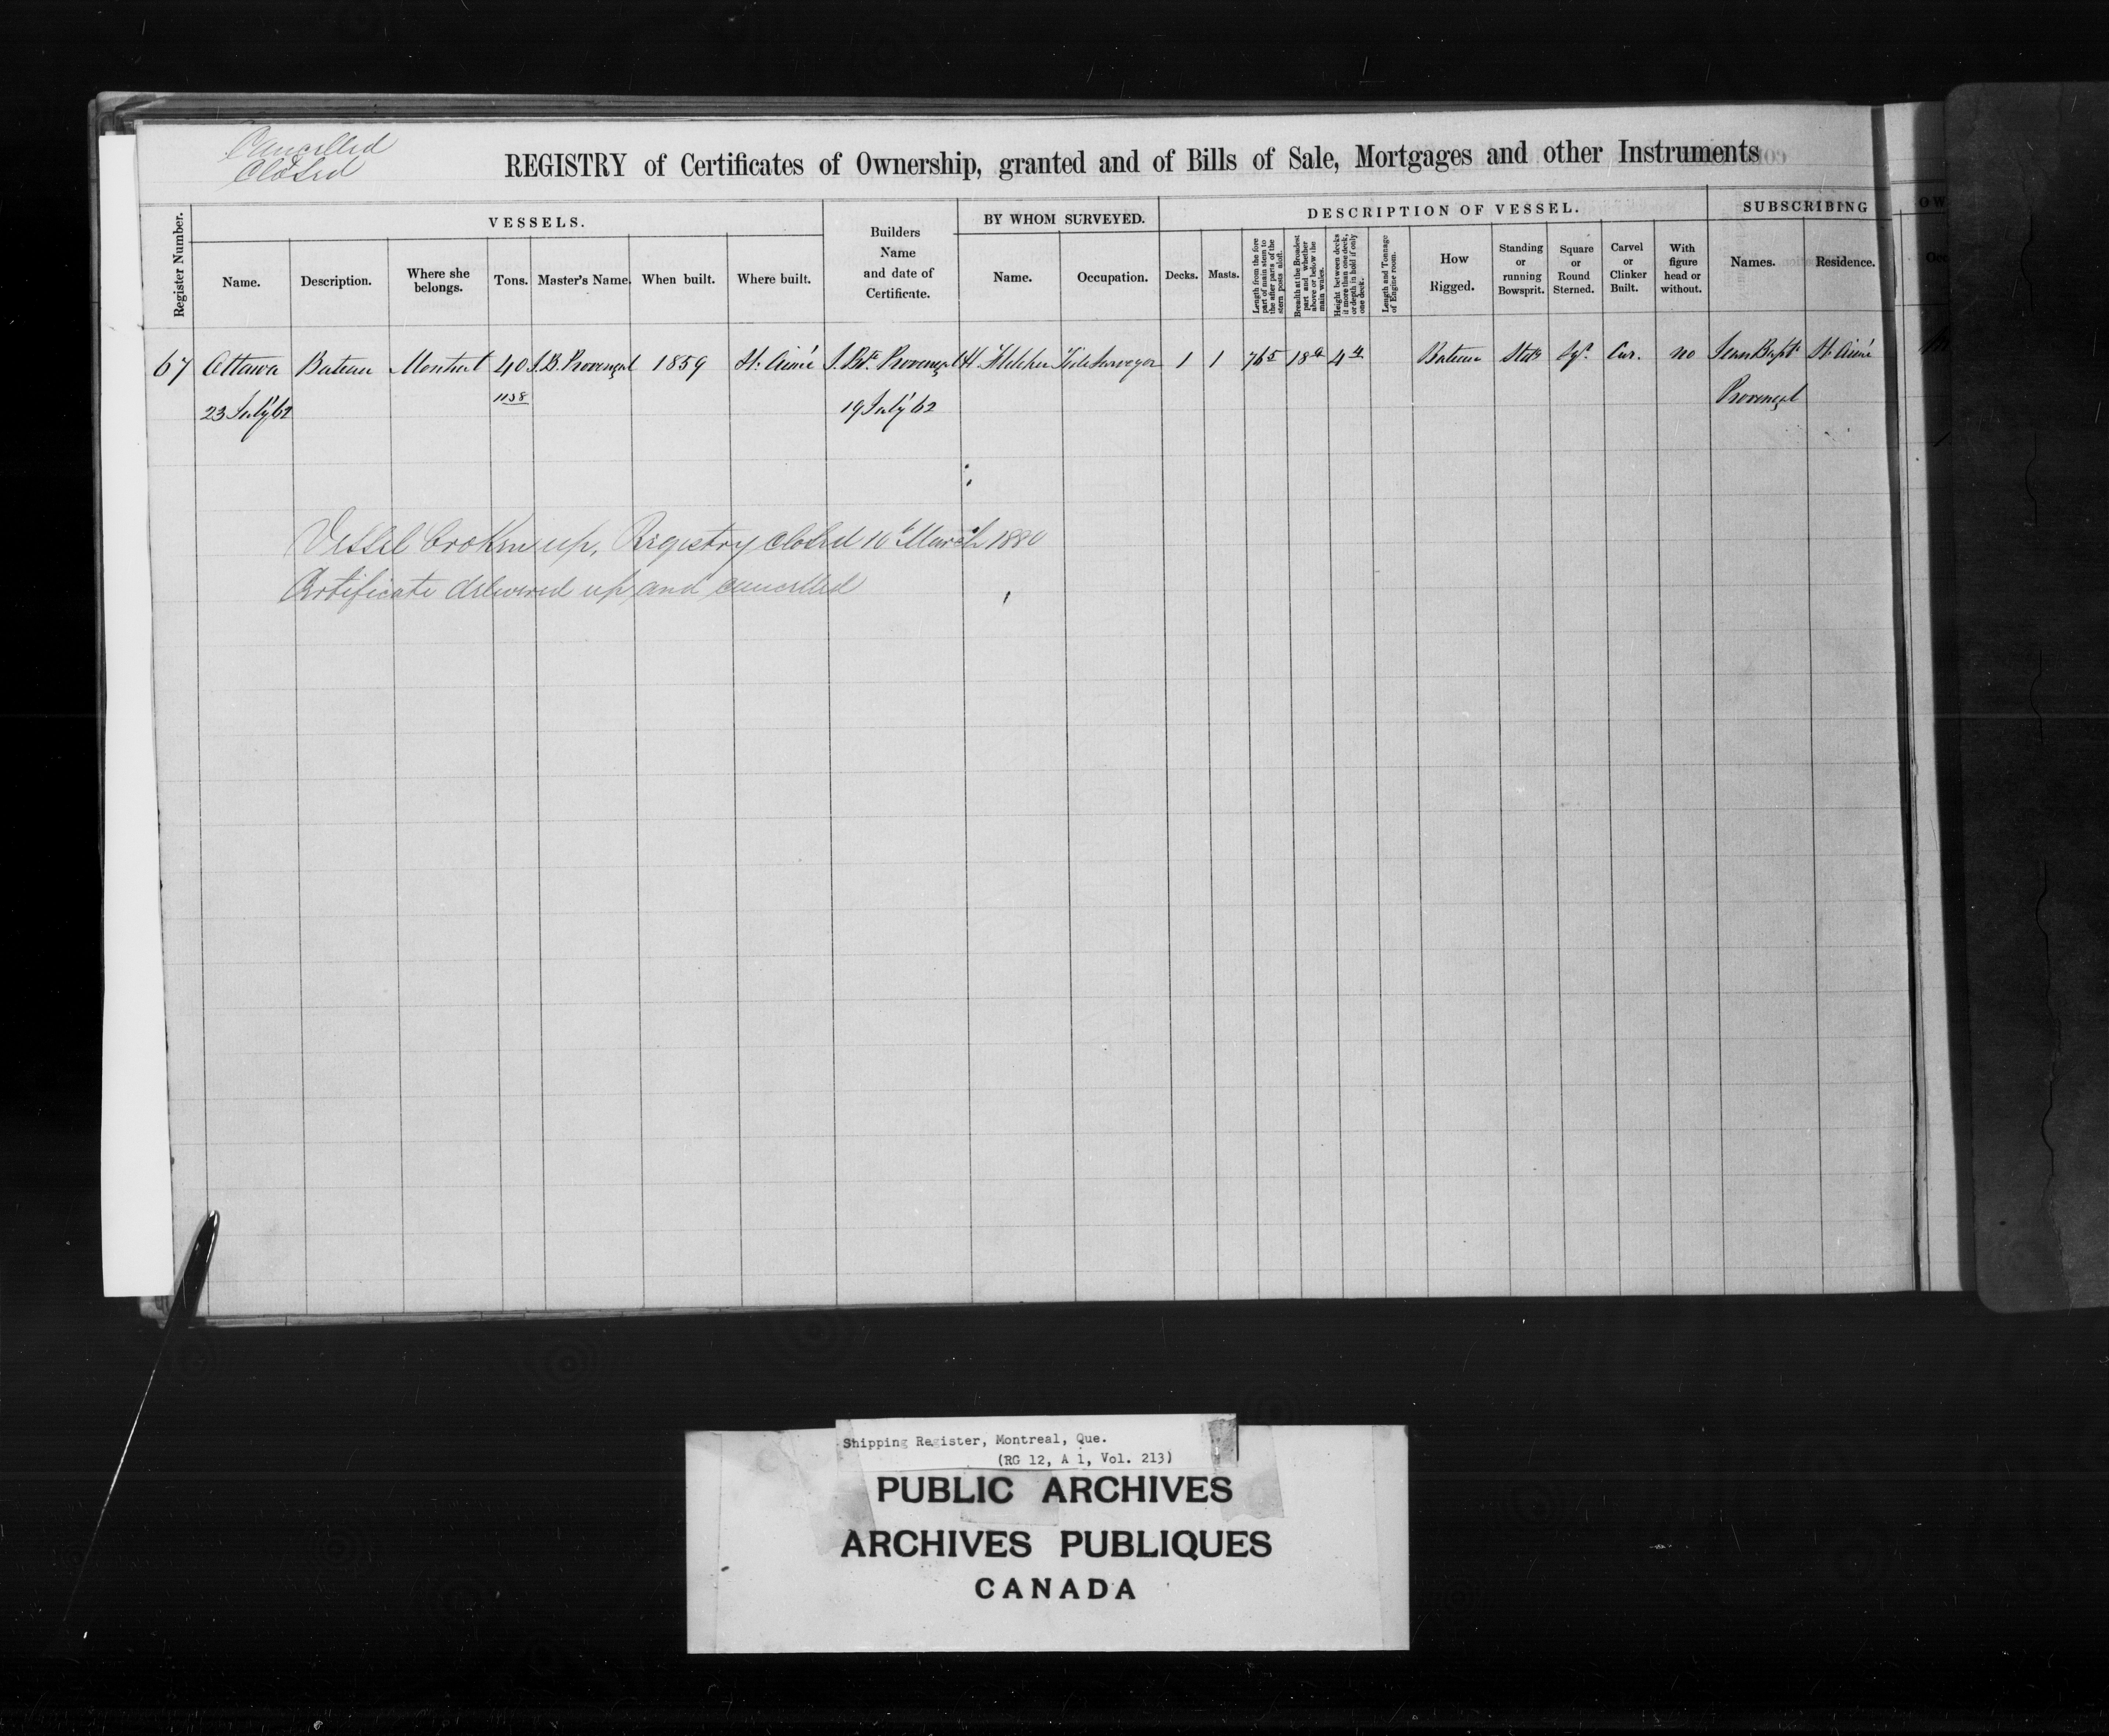 Cancelled
Closed
REGISTRY of Certificates of Ownership, granted and of Bills of Sale, Mortgages and other Instruments
Register Number.
VESSELS.
Name.
Description.
Where she belongs.
Tons.
Master's Name.
When built.
Where built.
Builders Name and date of Certificate.
BY WHOM SURVEYED.
Name.
Occupation.
DESCRIPTION OF VESSEL.
Decks.
Masts.
Length from the fore part of main stem to the after parts of the stern posts aloft.
Breadth at the Broadest part and whether above or below the main wales.
Height between decks if more than one deck, or depth in hold if only one deck.
Length and Tonnage of Engine room.
How Rigged.
Standing or running Bowsprit.
Square or Round Sterned.
Carvel or Clinker Built.
With figure head or without.
SUBSCRIBING
Names.
Residence.
OW
Occ
67 Ottawa Bateau Montreal 40 J.B. Provençal 1859 St. Aimé J. Bte. Provençal H. Tide Surveyor 1 1 76 5 18 4 4 Bateau Sqr. Car. no Jean Bapte St. Aimé
23 July 62 1158 19 July 62 Provençal
Vessel broken up, Registry closed 10th March 1880
Certificate delivered up and cancelled
Shipping Register, Montreal, Que.
(RG 12, A 1, Vol. 213)
PUBLIC ARCHIVES
ARCHIVES PUBLIQUES
CANADA